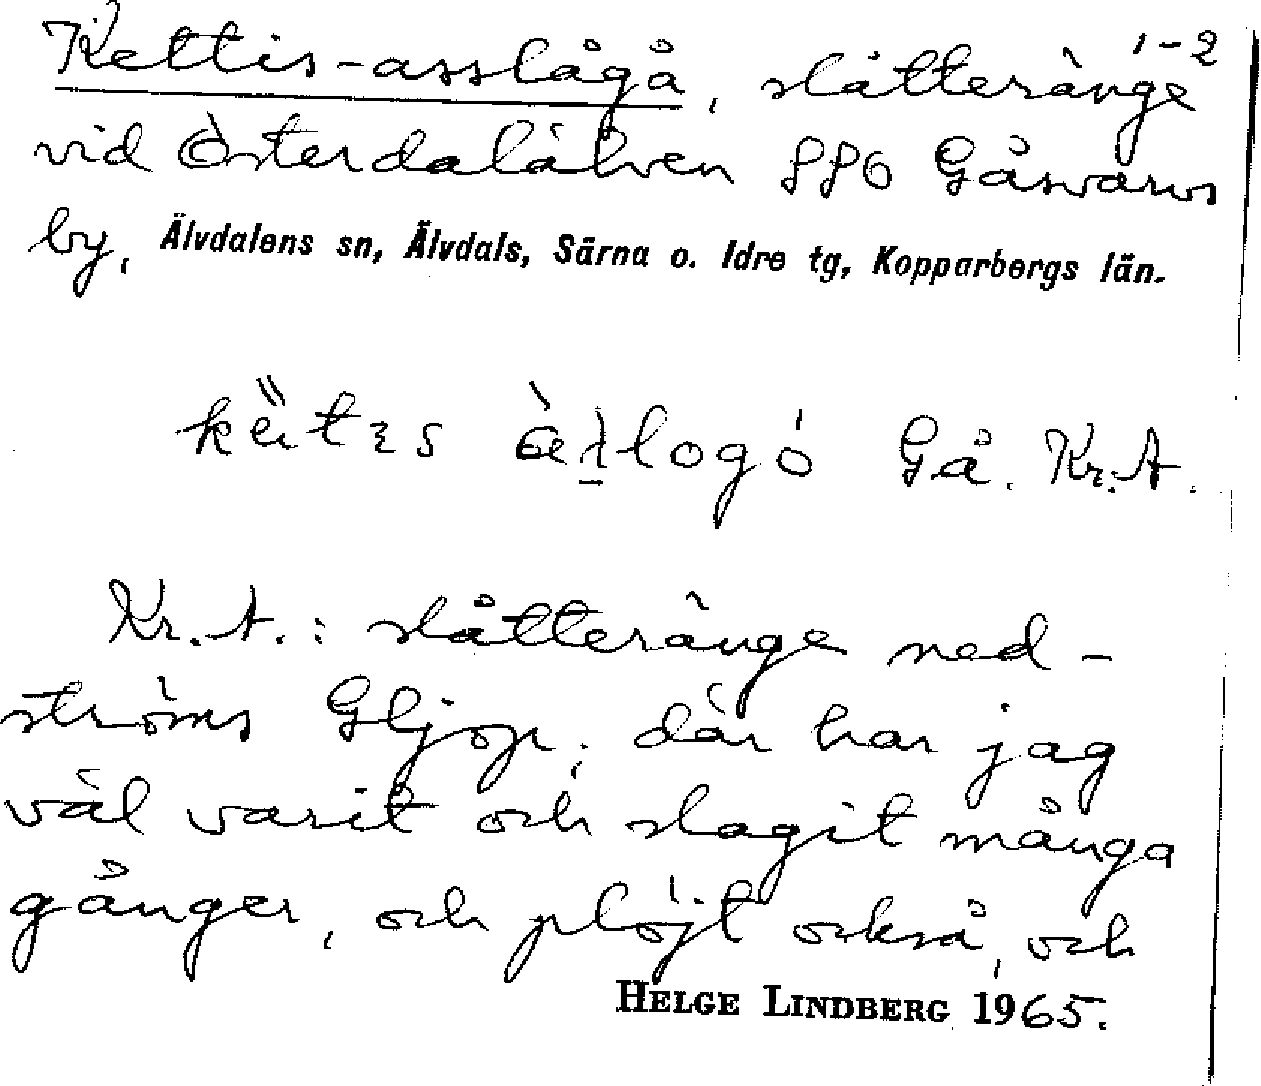 Kettis-asslågå, slåtteränge 1-2
vid Österdalälven SSO Gåsvarvs
by, Älvdalens sn, Älvdals, Särna o. Idre tg, Kopparbergs län.
Gå. Kr. A.
Kr. A.: slåtteränge ned-
ströms Gljop; där har jag
väl varit och slagit många
gånger, och plöjt också, och
HELGE LINDBERG 1965.